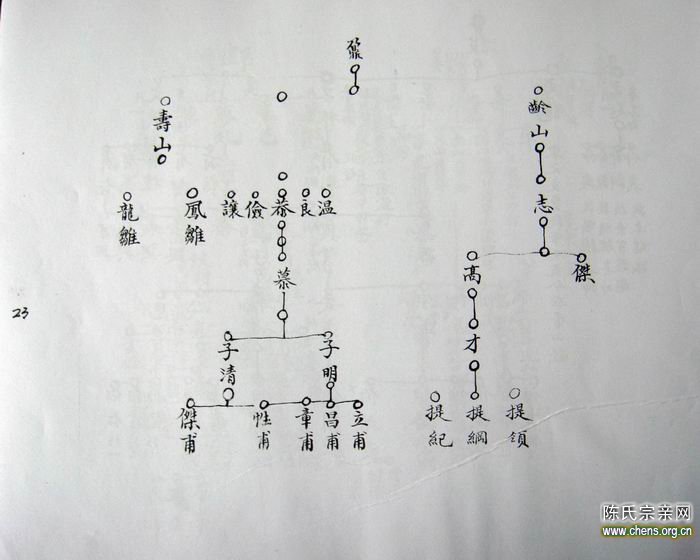 鼐
齡山
壽山
志
温
良
恭
儉
讓
鳳雛
龍雛
慕
傑
高
子明
子清
才
提領
提綱
提紀
立甫
昌甫
章甫
性甫
傑甫
23
陈氏宗亲网
www.chens.org.cn